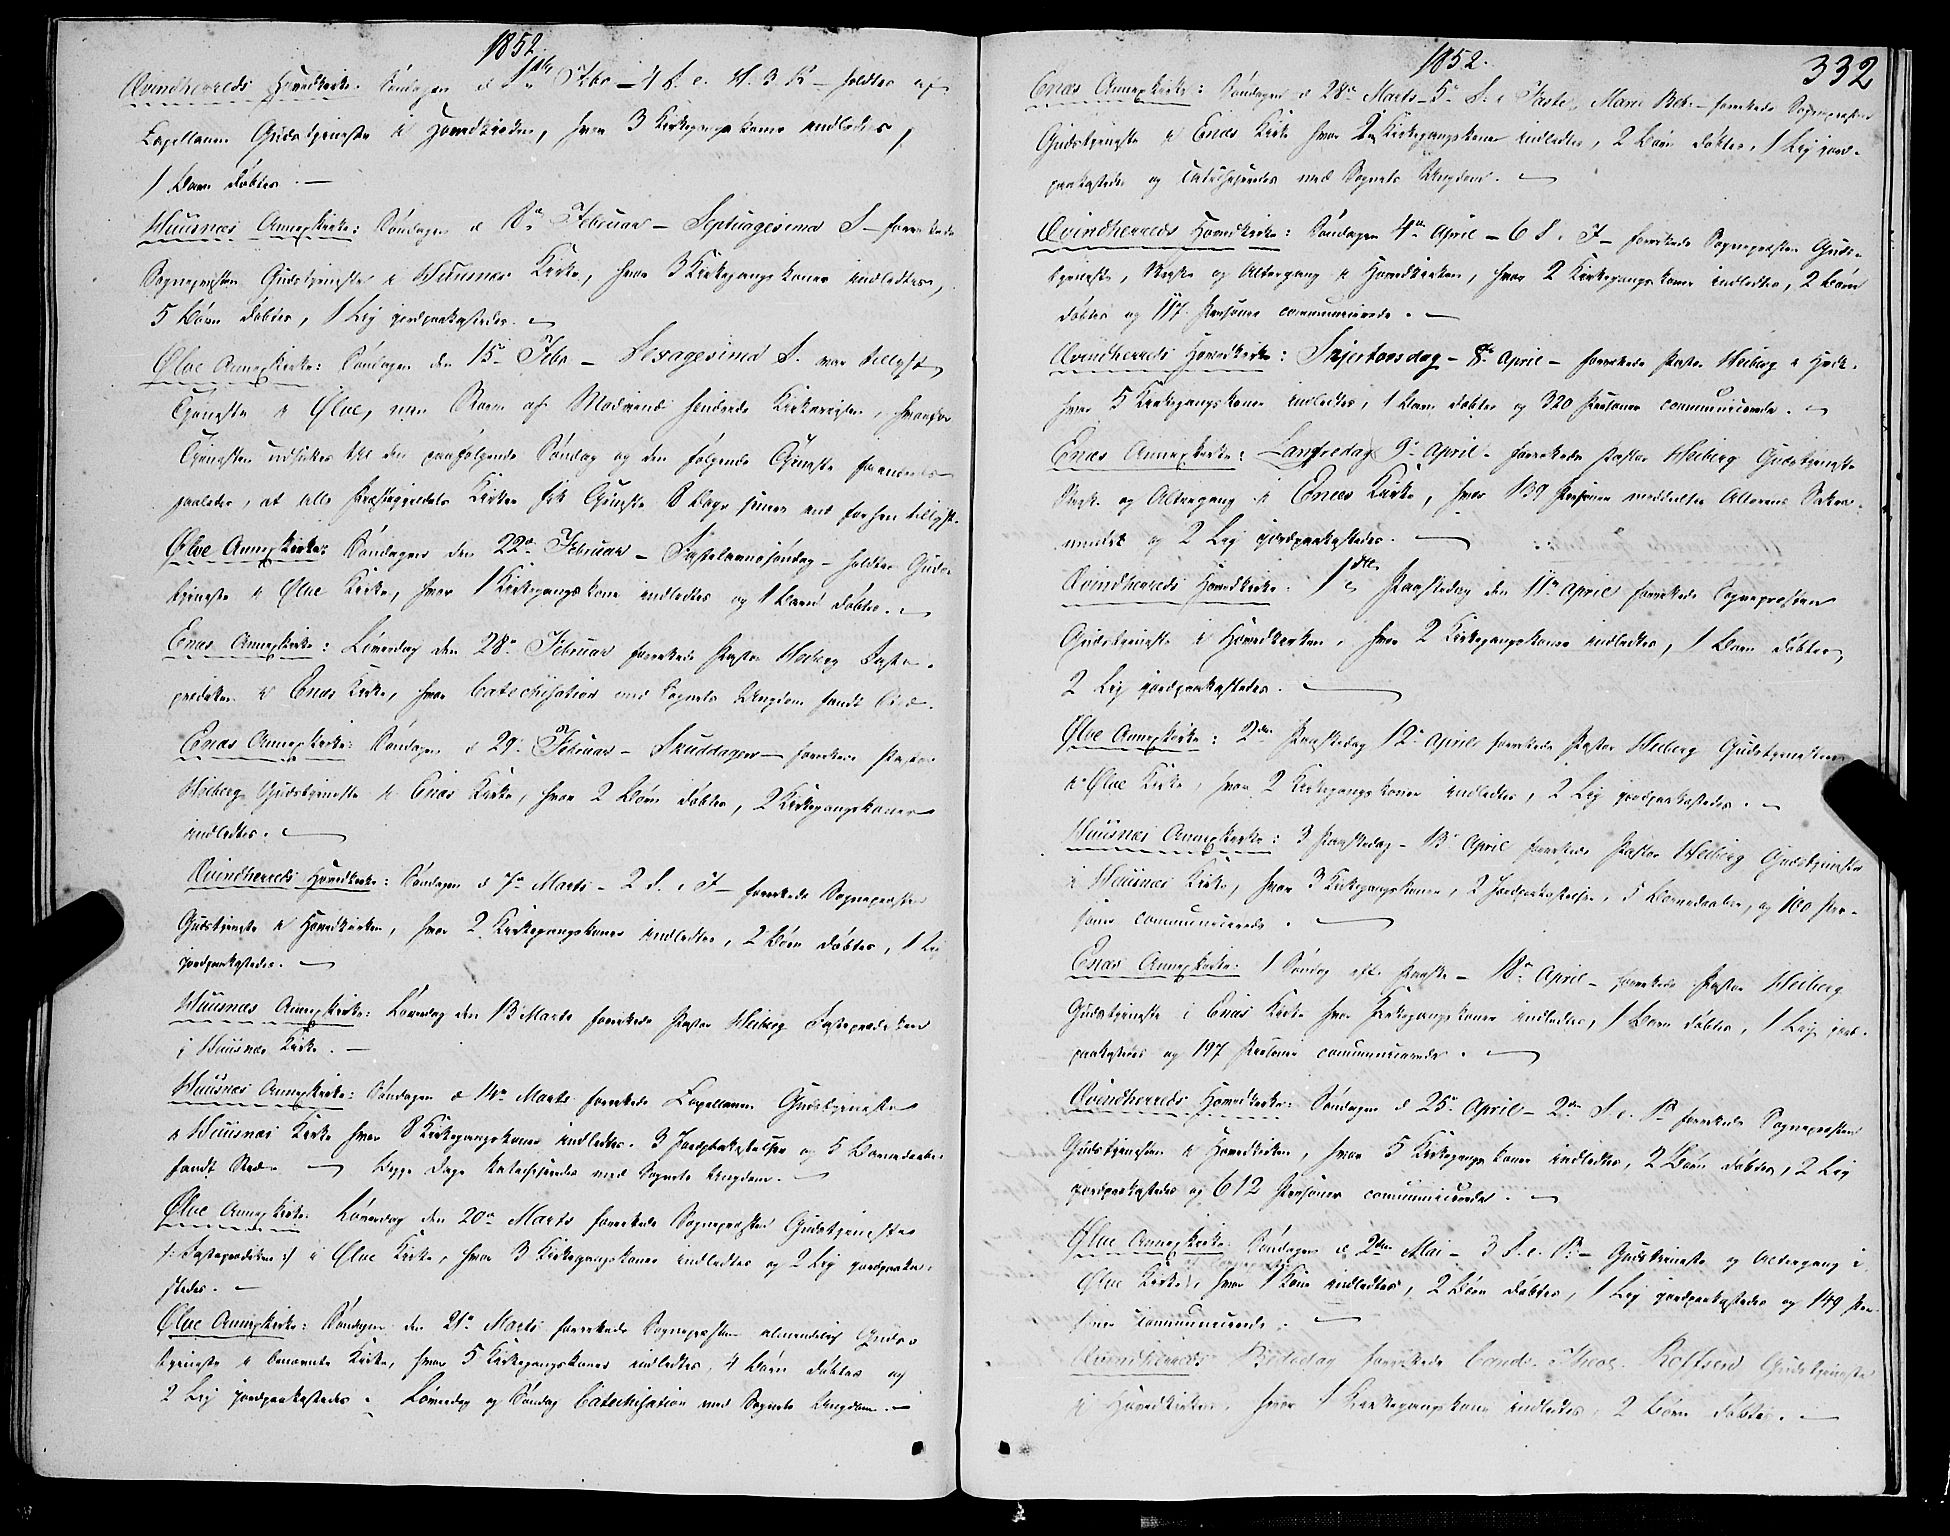 1852
Qvindherreds Hovedkirke. Søndagen d 1ste Febr – 4 S. e. H. 3 K – holdtes af
Capellanen Gudstjeneste i Hovedkirken, hvor 3 Kirkegangskoner indledtes,
1 Barn døbtes. —
Huusnæs Annexkirke: Søndagen d 8de Februar – Septuagesima S – forrettede
Sognepresten Gudstjeneste i Huusnæs Kirke, hvor 3 Kirkegangskoner indledtes,
5 Børn døbtes, 1 Lig jordpaakastedes. —
Ølve Annexkirke: Søndagen den 15de Febr – Sexagesima S. var tillyst
Tjeneste i Ølve, men Storm af Modvind hindrede Kirkereisen, hvorfor
Tjenesten udsattes til den paafølgende Søndag og den følgende Tjeneste forandredes
saaledes, at alle Præstegjeldets Kirker fik Tjeneste 8 Dage senere end forhen tillyst.
Ølve Annexkirke: Søndagen den 22de Februar – Fastelavnssøndag – holdtes Guds-
tjeneste i Ølve Kirke, hvor 1 Kirkegangskone indledtes og 1 Barn døbtes. —
Enæs Annexkirke: Löverdag den 28de Februar forrettede Pastor Heiberg Faste-
prædiken i Enæs Kirke, hvor Catechisation med Sognets Ungdom fandt Sted.
Enæs Annexkirke: Søndagen d 29. Februar – Skuddagen – forrettede Pastor
Heiberg Gudstjeneste i Enæs Kirke, hvor 2 Børn døbtes, 2 Kirkegangskoner
indledtes. —
Qvindherreds Hovedkirke: Søndagen d 7de Marts – 2 S. i F – forrettede Sognepresten
Gudstjeneste i Hovedkirken, hvor 2 Kirkegangskoner indledtes, 2 Børn døbtes, 1 Lig
jordpaakastedes. —
Huusnæs Annexkirke: Löverdag den 13 Marts forrettede Pastor Heiberg Fasteprædiken
i Huusnæs Kirke. —
Huusnæs Annexkirke: Søndagen d 14de Marts forrettede Capellanen Gudstjeneste
i Huusnæs Kirke hvor 8 Kirkegangskoner indledtes. 3 Jordpaakastelser og 5 Barnedaaber
fandt Sted. — Begge Dage katechiseredes med Sognets Ungdom. —
Ølve Annexkirke: Löverdag den 20de Marts forrettede Sognepresten Gudstjeneste
/: Fasteprædiken :/ i Ølve Kirke, hvor 3 Kirkegangskoner indledtes og 2 Lig jordpaaka-
stedes. —
Ølve Annexkirke: Søndagen den 21de Marts forrettede Sognepresten almindelig Guds-
tjeneste i benævnte Kirke, hvor 5 Kirkegangskoner indledtes, 4 Børn døbtes og
2 Lig jordpaakastedes. Löverdag og Søndag Catechisation med Sognets Ungdom. —
1852.
332
Enæs Annexkirke: Søndagen d 28de Marts – 5te S. i Faste, Mariæ Beb. – forrettede Sognepresten
Gudstjeneste i Enæs Kirke hvor 2 Kirkegangskoner indledtes, 2 Børn døbtes, 1 Lig jord-
paakastedes og catechiseredes med Sognets Ungdom. —
Qvindherreds Hovedkirke: Søndagen 4de April – 6 S. i F – forrettede Sognepresten Guds-
tjeneste, Skrifte og Altergang i Hovedkirken, hvor 2 Kirkegangskoner indledtes, 2 Børn
døbtes og 117 Personer communicerede. —
Qvindherreds Hovedkirke: Skjertorsdag – 8de April – forrettede Pastor Heiberg i Hvdk.
hvor 5 Kirkegangskoner indledtes, 1 Barn døbtes og 320 Personer communicerede. —
Enæs Annexkirke: Langfredag 9de April – forrettede Pastor Heiberg Gudstjeneste
Skrift og Altergang i Enæs Kirke, hvor 139 Personer meddeltes Alterens Sakra-
mente og 2 Lig jordpaakastedes. —
Qvindherreds Hovedkirke: 1ste Paaskedag den 11te April forrettede Sognepresten
Gudstjeneste i Hovedkirken, hvor 2 Kirkegangskoner indledtes, 1 Barn døbtes,
2 Lig jordpaakastedes. —
Ølve Annexkirke: 2den Paaskedag 12te April forrettede Pastor Heiberg Gudstjenesten
i Ølve Kirke, hvor 2 Kirkegangskoner indledtes, 2 Lig jordpaakastedes. —
Huusnæs Annexkirke: 3 Paaskedag – 13de April forrettede Pastor Heiberg Gudstjeneste
i Huusnæs Kirke, hvor 3 Kirkegangskoner, 2 Jordpaakastelser, 5 Barnedaaber, og 100 Per-
soner communicerede. —
Enæs Annexkirke: 1 Søndag eft. Paaske – 18de April – forrettede Pastor Heiberg
Gudstjeneste i Enæs Kirke hvor Kirkegangskoner indledtes, 1 Barn døbtes, 1 Lig jord-
paakastedes og 197 Personer communicerede. —
Qvindherreds Hovedkirke: Søndagen d 25de April – 2den S. e. P – forrettede Sognepresten
Gudstjenesten i Hovedkirken, hvor 5 Kirkegangskoner indledtes, 2 Børn døbtes, 2 Lig
jordpaakastedes og 612 Personer communicerede. —
Ølve Annexkirke. Søndagen d 2den Mai – 3 S. e. P. – Gudstjeneste og Altergang i
Ølve Kirke, hvor 1 Kone indledtes, 2 Børn døbtes, 1 Lig jordpaakastedes og 149 Per-
soner communicerede. —
Qvindherreds Bededag forrettede Cand. Theol. Rolfsen Gudstjeneste
i Hovedkirken, hvor 1 Kirkegangskone indledtes, 2 Børn døbtes. —